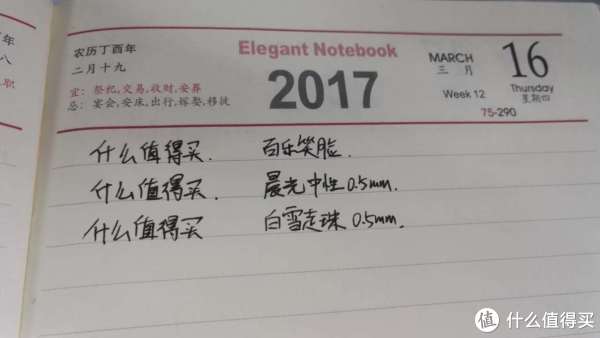 年
农历丁酉年
二月十九
Elegant Notebook
2017
MARCH
三 月
Week 12
16
Thursday
星期四
75-290
宜：祭祀,交易,收财,安葬
忌：宴会,安床,出行,嫁娶,移徙
什么值得买. 百乐笑脸.
什么值得买. 晨光中性0.5mm.
什么值得买 白雪走珠0.5mm.
值 什么值得买